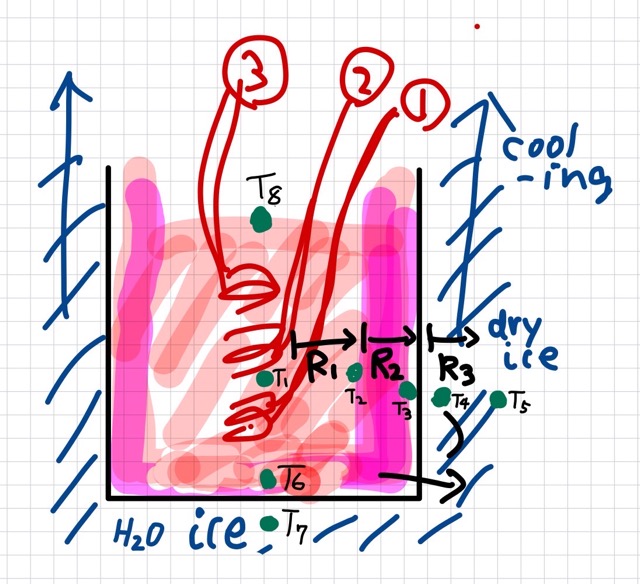 3
2
1
cool
-ing
T8
dry
ice
R1
R2
R3
T1
T2
T3
T4
T5
T6
T7
H2O ice